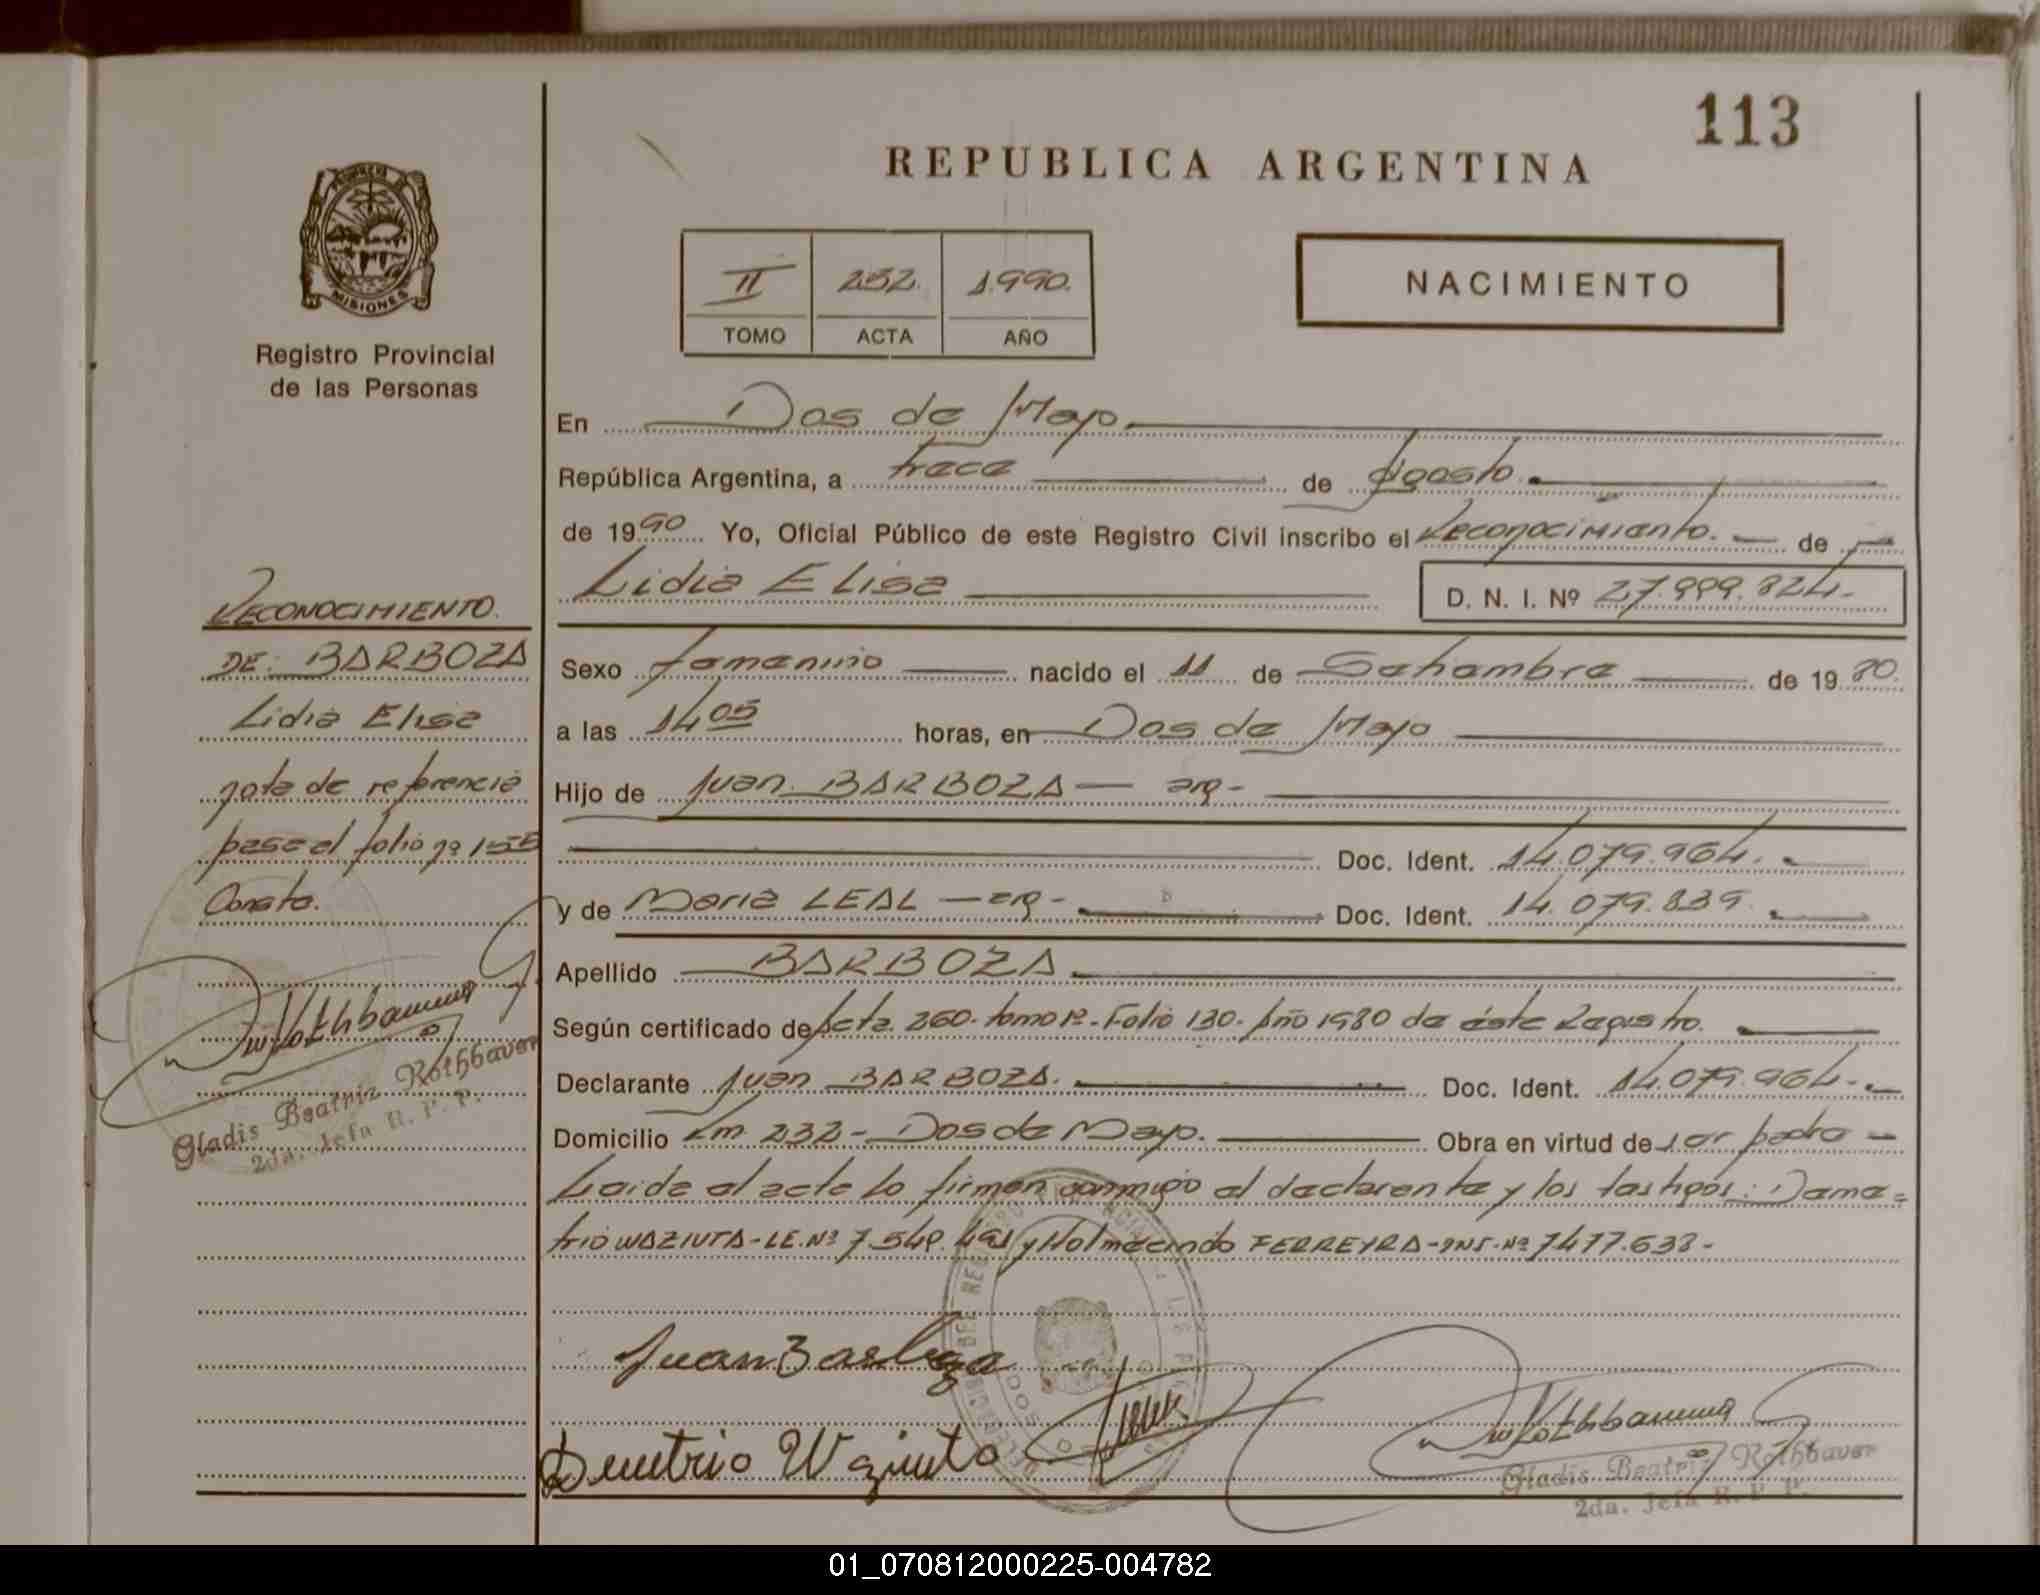 113
REPUBLICA ARGENTINA
PROVINCIA DE
MISIONES
Registro Provincial
de las Personas
II 232. 1.990.
TOMO ACTA AÑO
NACIMIENTO
En Dos de Mayo.
República Argentina, a trece de Agosto.
de 1990 Yo, Oficial Público de este Registro Civil inscribo el Reconocimiento. de
Lidia Elisa D. N. I. Nº 27.999.824.-
Sexo femenino nacido el 11 de Setiembre de 1980.
a las 14 05 horas, en Dos de Mayo
Hijo de Juan BARBOZA — arg-
Doc. Ident. 14.079.964.
y de Maria LEAL — arg- Doc. Ident. 14.079.839.
Apellido BARBOZA
Según certificado de Acta. 260. tomo 1º- Folio 130. Año 1980 de éste Registro.
Declarante Juan BARBOZA. Doc. Ident. 14.079.964.-
Domicilio Km. 232- Dos de Mayo. Obra en virtud de ser padre
Leida el acta lo firman conmigo el declarante y los testigos: Deme=
trio WAZIUTA-LE.Nº 7.549. y FERREYRA- Nº 7477.638-
Juan Barboza
Demetrio Waziuta
Gladis Beatriz Rothbauer
2da. Jefa R. P. P.
RECONOCIMIENTO.
DE: BARBOZA
Lidia Elisa
nota de referencia
pase al folio nº 155
Conste.
Gladis Beatriz Rothbauer
2da. Jefa R. P. P.
01_070812000225-004782